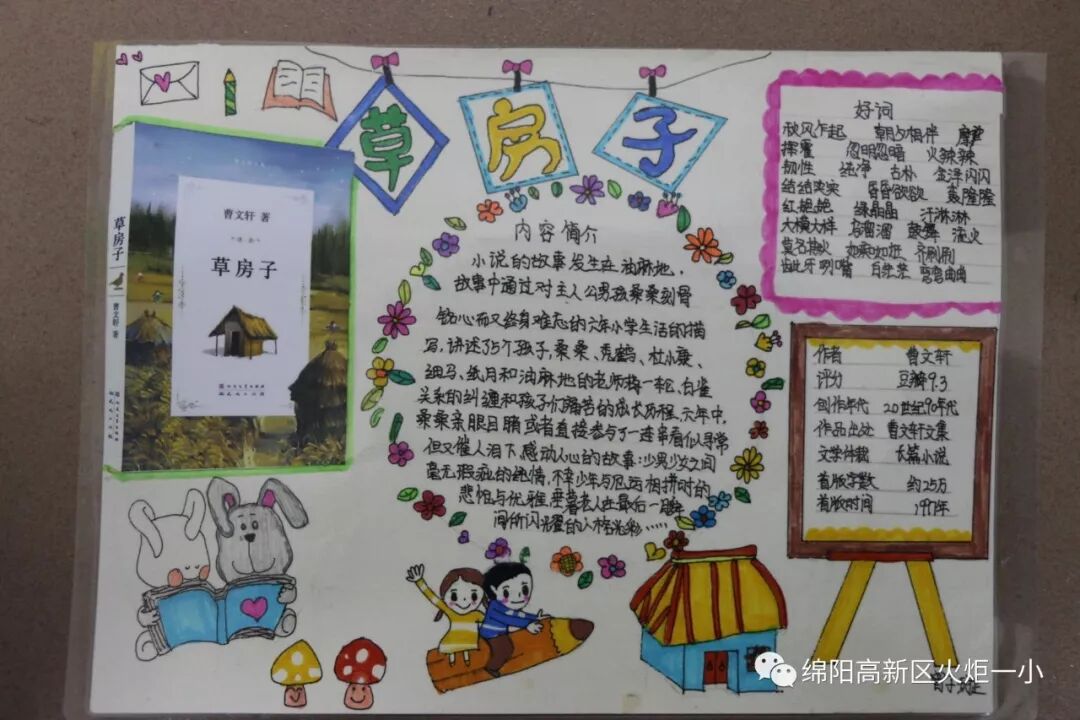 草房子
曹文轩 著
草房子
草房子
曹文轩 著
人民文学出版社
内容简介
小说的故事发生在油麻地,
故事中通过对主人公男孩桑桑刻骨
铭心而又终身难忘的六年小学生活的描
写,讲述了5个孩子,桑桑、秃鹤、杜小康、
细马、纸月和油麻地的老师蒋一轮、白雀
关系的纠缠和孩子们痛苦的成长历程,六年中,
桑桑亲眼目睹或者直接参与了一连串看似寻常
但又催人泪下、感动人心的故事:少男少女之间
毫无瑕疵的纯情,不幸少年与厄运相拼时的
悲怆与优雅,垂暮老人在最后一瞬
间所闪耀的人格光彩……
好词
秋风乍起 朝夕相伴
撩霍 忽明忽暗 火辣辣
韧性 纯净 古朴 金泽闪闪
结结实实 昏昏欲欲 轰隆隆
红艳艳 绿晶晶 汗淋淋
大模大样 乌溜溜 鼓舞 流火
莫名其火 如癸如炬 齐刷刷
龇牙咧嘴 白茫茫 弯弯曲曲
作者 曹文轩
评分 豆瓣9.3
创作年代 20世纪90年代
作品出处 曹文轩文集
文学体裁 长篇小说
首版字数 约25万
首版时间 1997年
绵阳高新区火炬一小